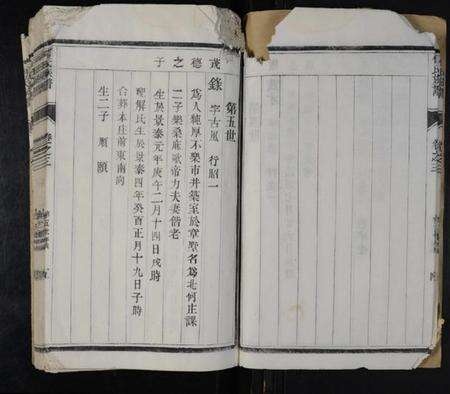 第五世
茂德之子
錄 字古風 行昭一
為人純厚不樂市井築室於章墅名為北何庄課
二子樂桑麻歌帝力夫妻偕老
生於景泰元年庚午二月十四日戌時
娶解氏生於景泰四年癸酉正月十九日子時
合葬本庄前東南崗
生二子 順 頤
卷之三